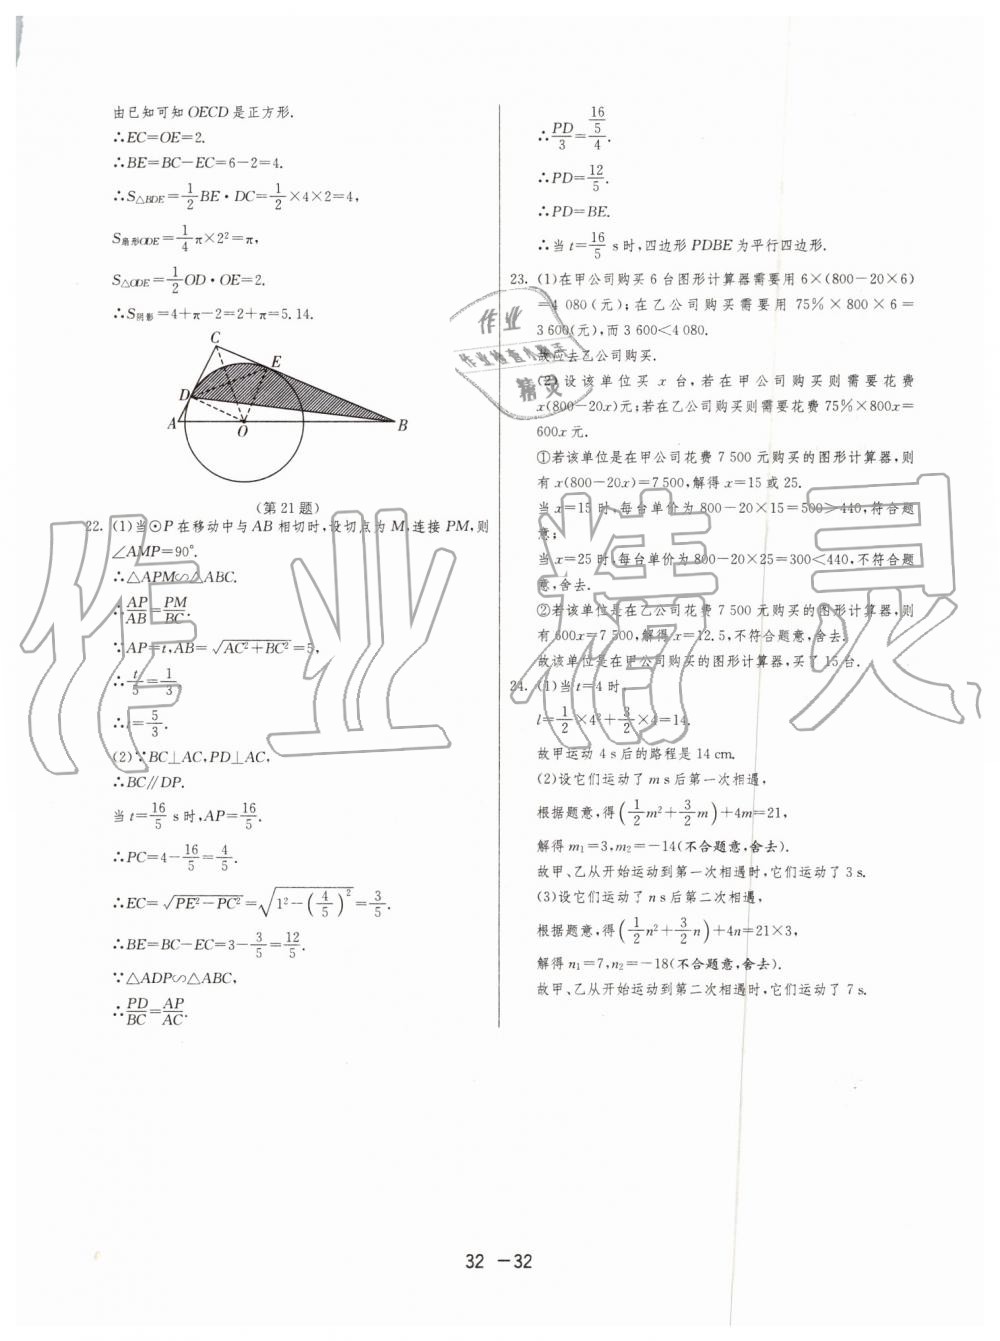 由已知可知OECD是正方形.
∴EC=OE=2.
∴BE=BC-EC=6-2=4.
∴S△BDE=1/2BE·DC=1/2×4×2=4,
S扇形ODE=1/4π×2²=π,
S△ODE=1/2OD·OE=2.
∴S阴影=4+π-2=2+π=5.14.
C
E
D
A
O
B
(第21题)
22. (1)当⊙P在移动中与AB相切时,设切点为M,连接PM,则
∠AMP=90°.
∴△APM∽△ABC.
∴AP/AB=PM/BC.
∵AP=t,AB=√(AC²+BC²)=5,
∴t/5=1/3
∴t=5/3.
(2)∵BC⊥AC,PD⊥AC,
∴BC∥DP.
当t=16/5 s时,AP=16/5.
∴PC=4-16/5=4/5.
∴EC=√(PE²-PC²)=√(1²-(4/5)²)=3/5.
∴BE=BC-EC=3-3/5=12/5.
∵△ADP∽△ABC,
∴PD/BC=AP/AC.
∴PD/3=(16/5)/4.
∴PD=12/5.
∴PD=BE.
∴当t=16/5 s时,四边形PDBE为平行四边形.
23. (1)在甲公司购买6台图形计算器需要用6×(800-20×6)
=4 080(元);在乙公司购买需要用75%×800×6=
3 600(元),而3 600<4 080.
故应去乙公司购买.
(2)设该单位买x台,若在甲公司购买则需要花费
x(800-20x)元;若在乙公司购买则需要花费75%×800x=
600x元.
①若该单位是在甲公司花费7 500元购买的图形计算器,则
有x(800-20x)=7 500,解得x=15或25.
当x=15时,每台单价为800-20×15=500>440,符合题
意;
当x=25时,每台单价为800-20×25=300<440,不符合题
意,舍去.
②若该单位是在乙公司花费7 500元购买的图形计算器,则
有600x=7 500,解得x=12.5,不符合题意,舍去.
故该单位是在甲公司购买的图形计算器,买了15台.
24. (1)当t=4时,
l=1/2×4²+3/2×4=14.
故甲运动4 s后的路程是14 cm.
(2)设它们运动了m s后第一次相遇,
根据题意,得(1/2m²+3/2m)+4m=21,
解得m₁=3,m₂=-14(不合题意,舍去).
故甲、乙从开始运动到第一次相遇时,它们运动了3 s.
(3)设它们运动了n s后第二次相遇,
根据题意,得(1/2n²+3/2n)+4n=21×3,
解得n₁=7,n₂=-18(不合题意,舍去).
故甲、乙从开始运动到第二次相遇时,它们运动了7 s.
作业
精灵
作业精灵
32 -32